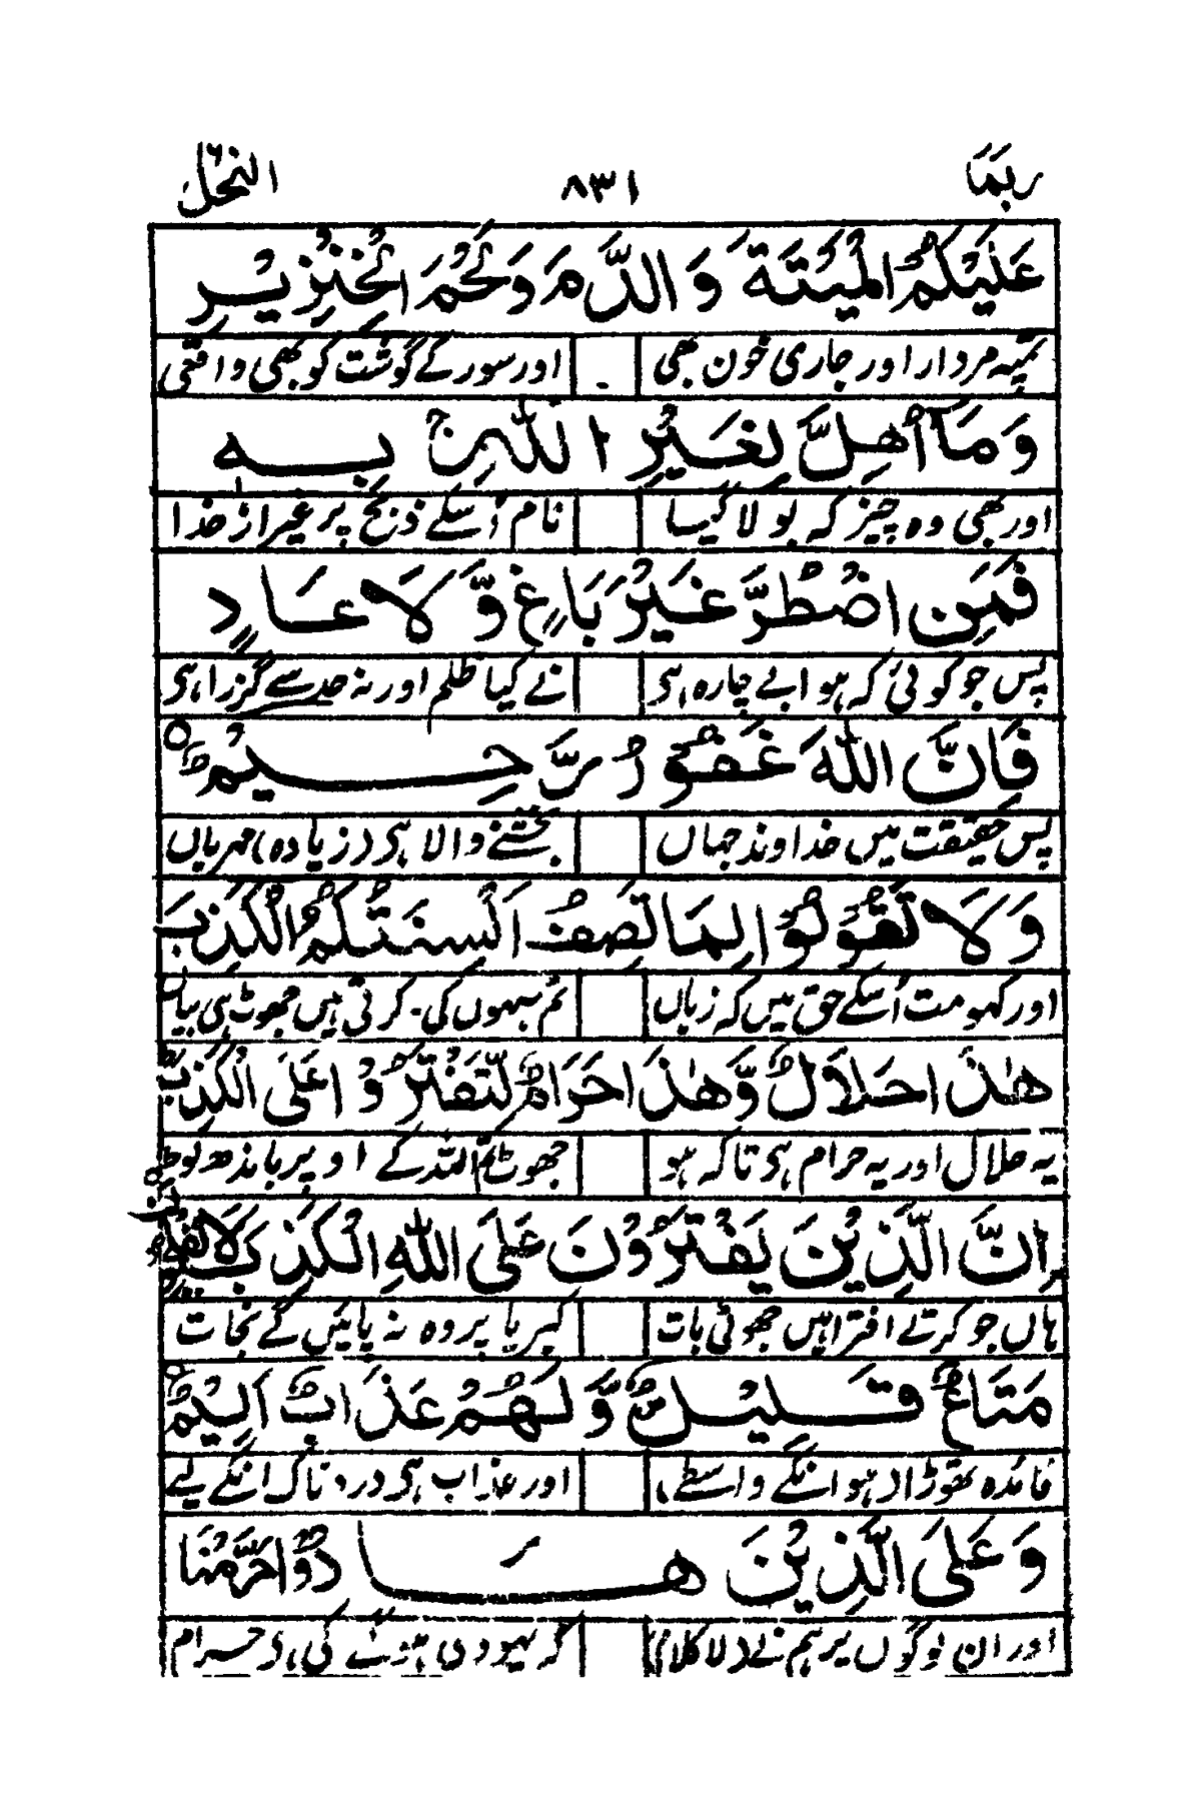 ربما ۸۳۱ النحل
عَلَيْكُمُ الْمَيْتَةَ وَالدَّمَ وَلَحْمَ الْخِنْزِيْرِ
تمپہ مردار اور جاری خون بھی - اور سور کے گوشت کو بھی واقعی
وَمَآ اُهِلَّ لِغَيْرِ اللّٰهِ بِهٖ
اور بھی وہ چیز کہ بولا گیا نام اُسکے ذبح پر غیر از خدا
فَمَنِ اضْطُرَّ غَيْرَ بَاغٍ وَّلَا عَادٍ
پس جو کوئی کہ ہوا بے چارہ ہی نے کیا ظلم اور نہ حد سے گزرا ہی
فَاِنَّ اللّٰهَ غَفُوْرٌ رَّحِيْمٌ
پس حقیقت میں خداوند جہاں بخشنے والا ہی (زیادہ) مہرباں
وَلَا تَقُوْلُوْا لِمَا تَصِفُ اَلْسِنَتُكُمُ الْكَذِبَ
اور کہو مت اُسکے حق میں کہ زباں تم سبھوں کی - کرتی ہیں جھوٹ ہی بیاں
هٰذَا حَلَالٌ وَّهٰذَا حَرَامٌ لِّتَفْتَرُوْا عَلَى اللّٰهِ الْكَذِبَ
یہ حلال اور یہ حرام ہی تاکہ ہو جھوٹ اللہ کے اوپر باندھ لو
اِنَّ الَّذِيْنَ يَفْتَرُوْنَ عَلَى اللّٰهِ الْكَذِبَ لَا يُفْلِحُوْنَ
ہاں جو کرتے افترا ہیں جھوٹی بات کبریا پر وہ نہ پائیں گے نجات
مَتَاعٌ قَلِيْلٌ وَّلَهُمْ عَذَابٌ اَلِيْمٌ
فائدہ تھوڑا ہو انکے واسطے، اور عذاب ہی درد ناک انکے لیے
وَعَلَى الَّذِيْنَ هَادُوْا حَرَّمْنَا
اور ان لوگوں پر ہم نے (لا کلام) کہ یہودی ہو کی، حرام